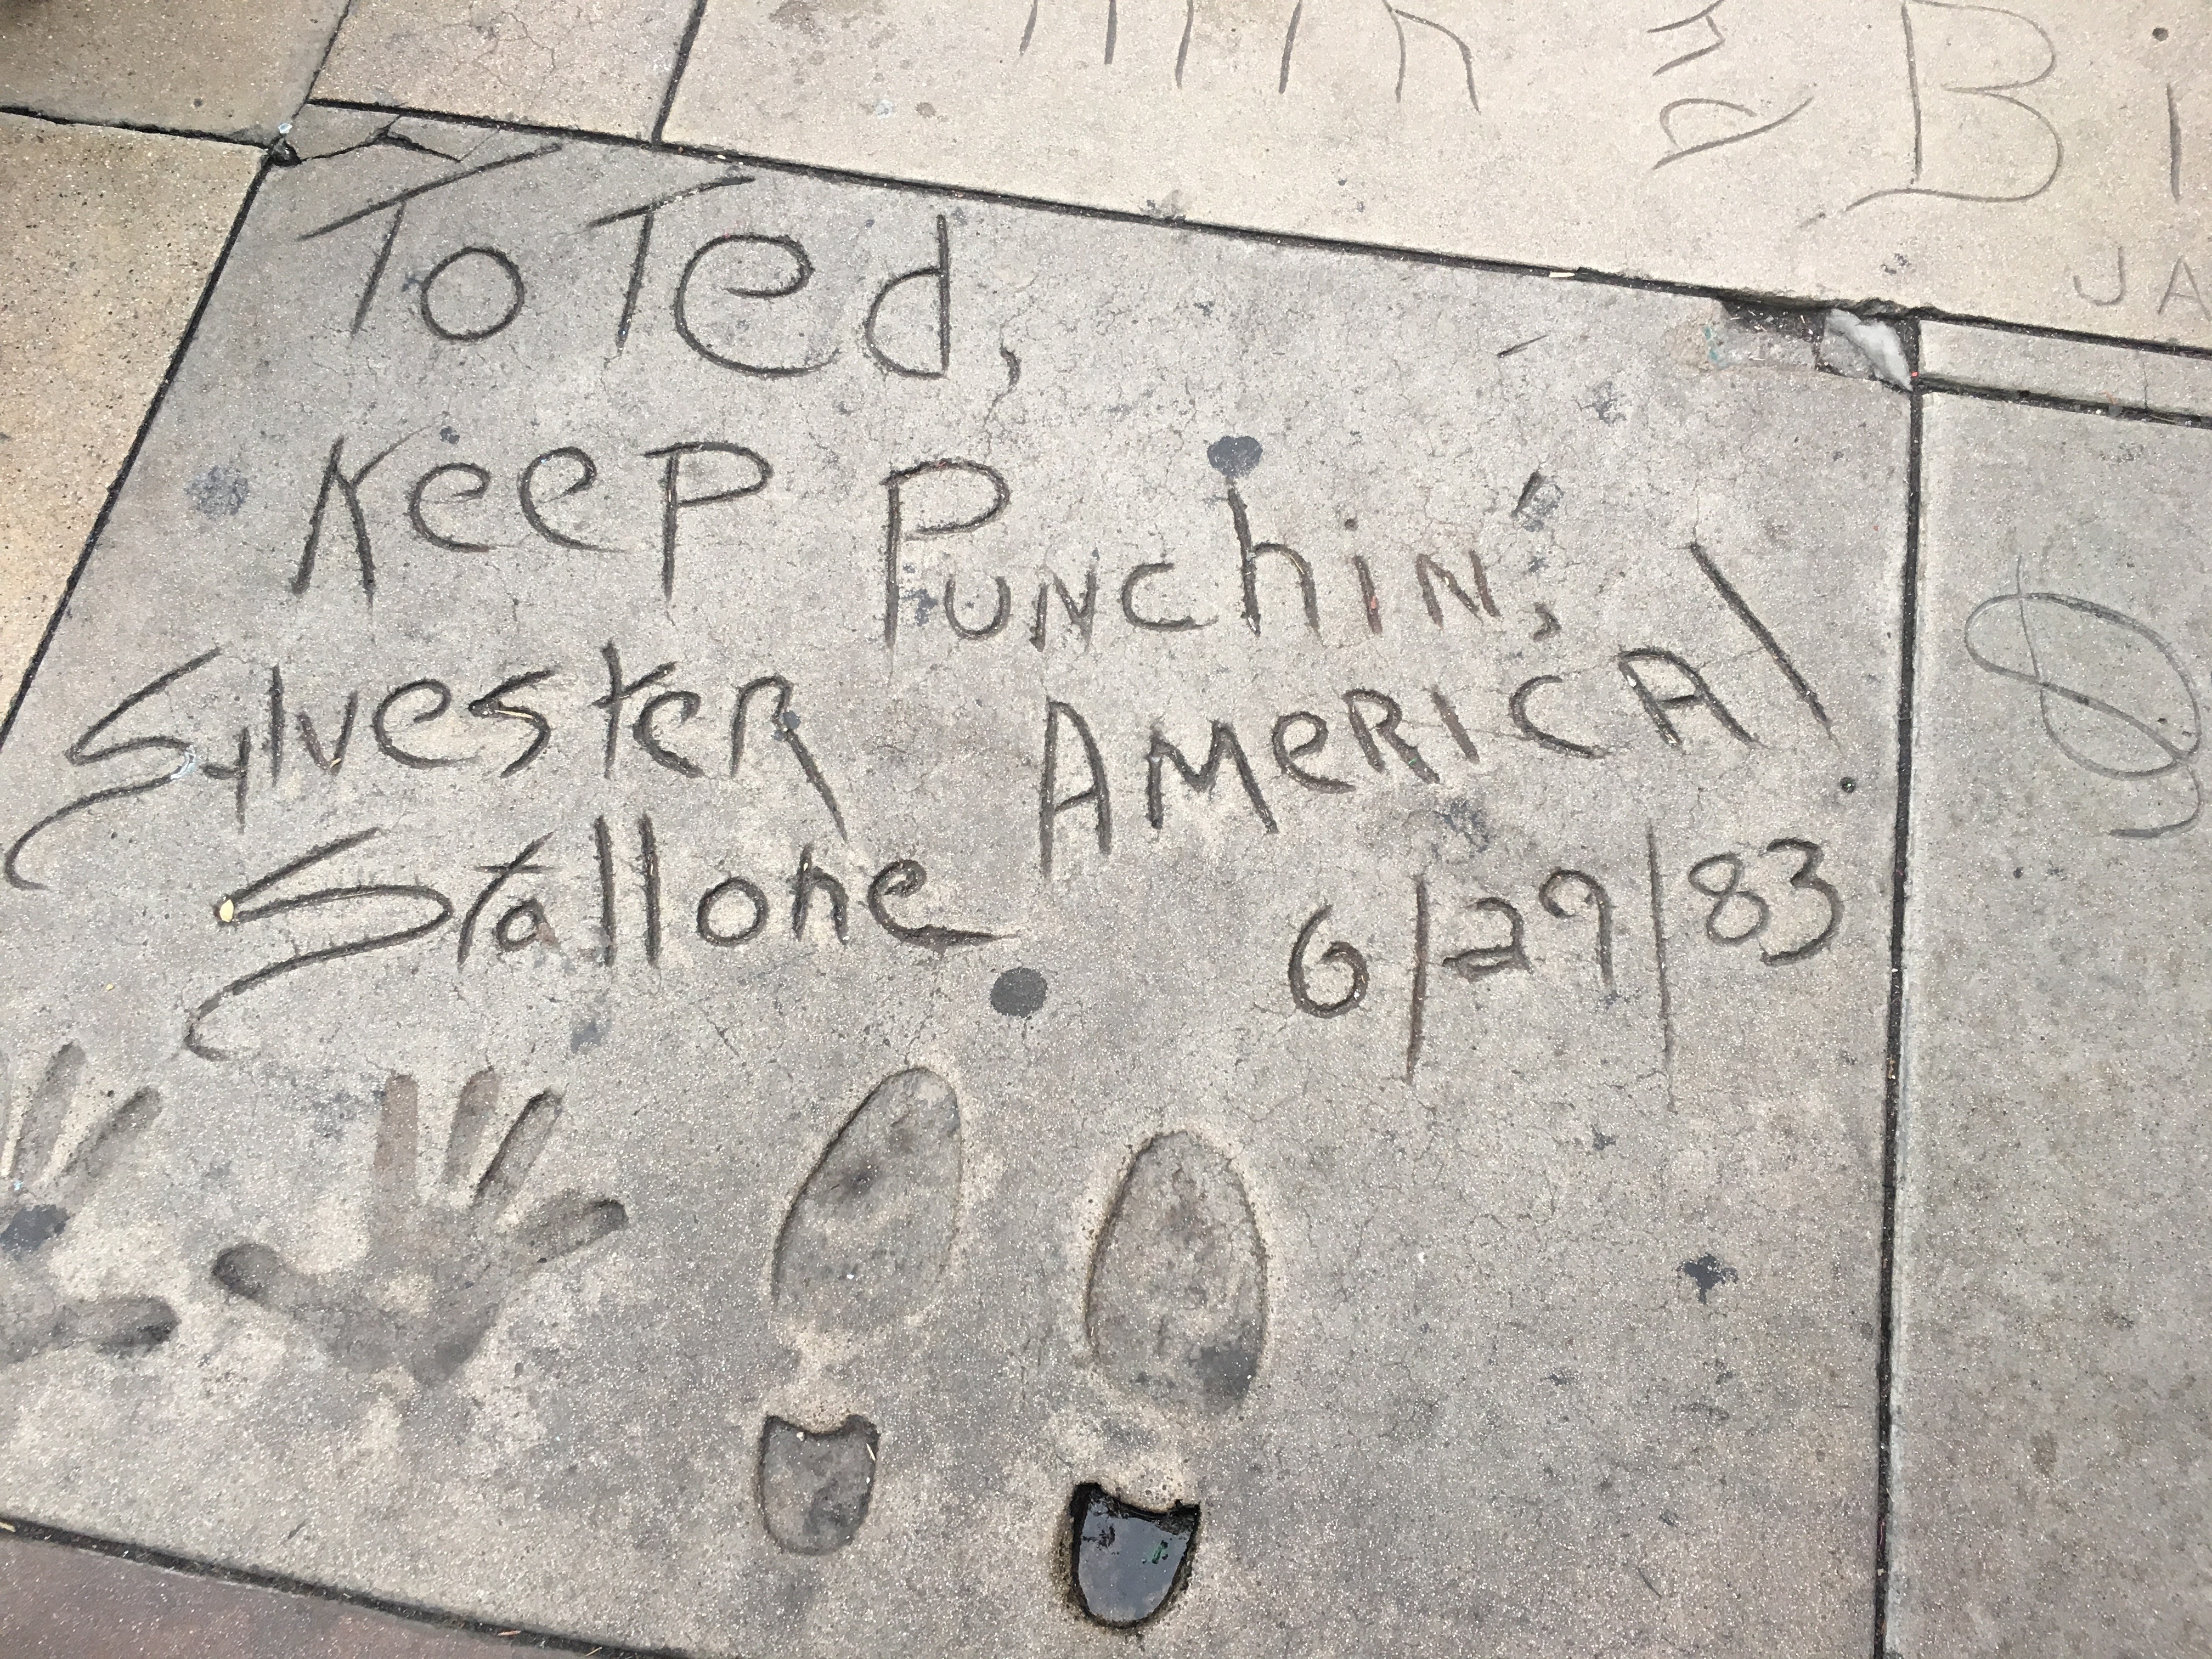 To Ted,
Keep Punchin',
America!
Sylvester
Stallone
6/29/83
JA